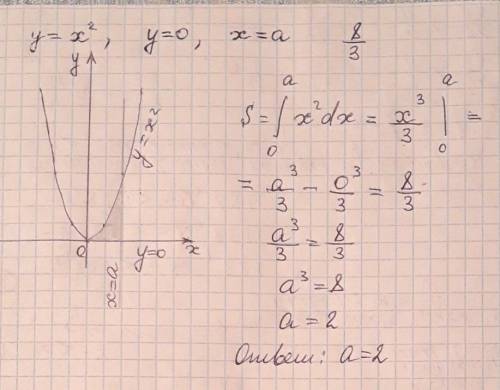 y = x², y=0, x=a 8/3
y
y=x²
0
x=a
y=0
x
S = ∫₀ᵃ x²dx = x³/3 |₀ᵃ =
= a³/3 − 0³/3 = 8/3
a³/3 = 8/3
a³ = 8
a = 2
Ответ: a=2